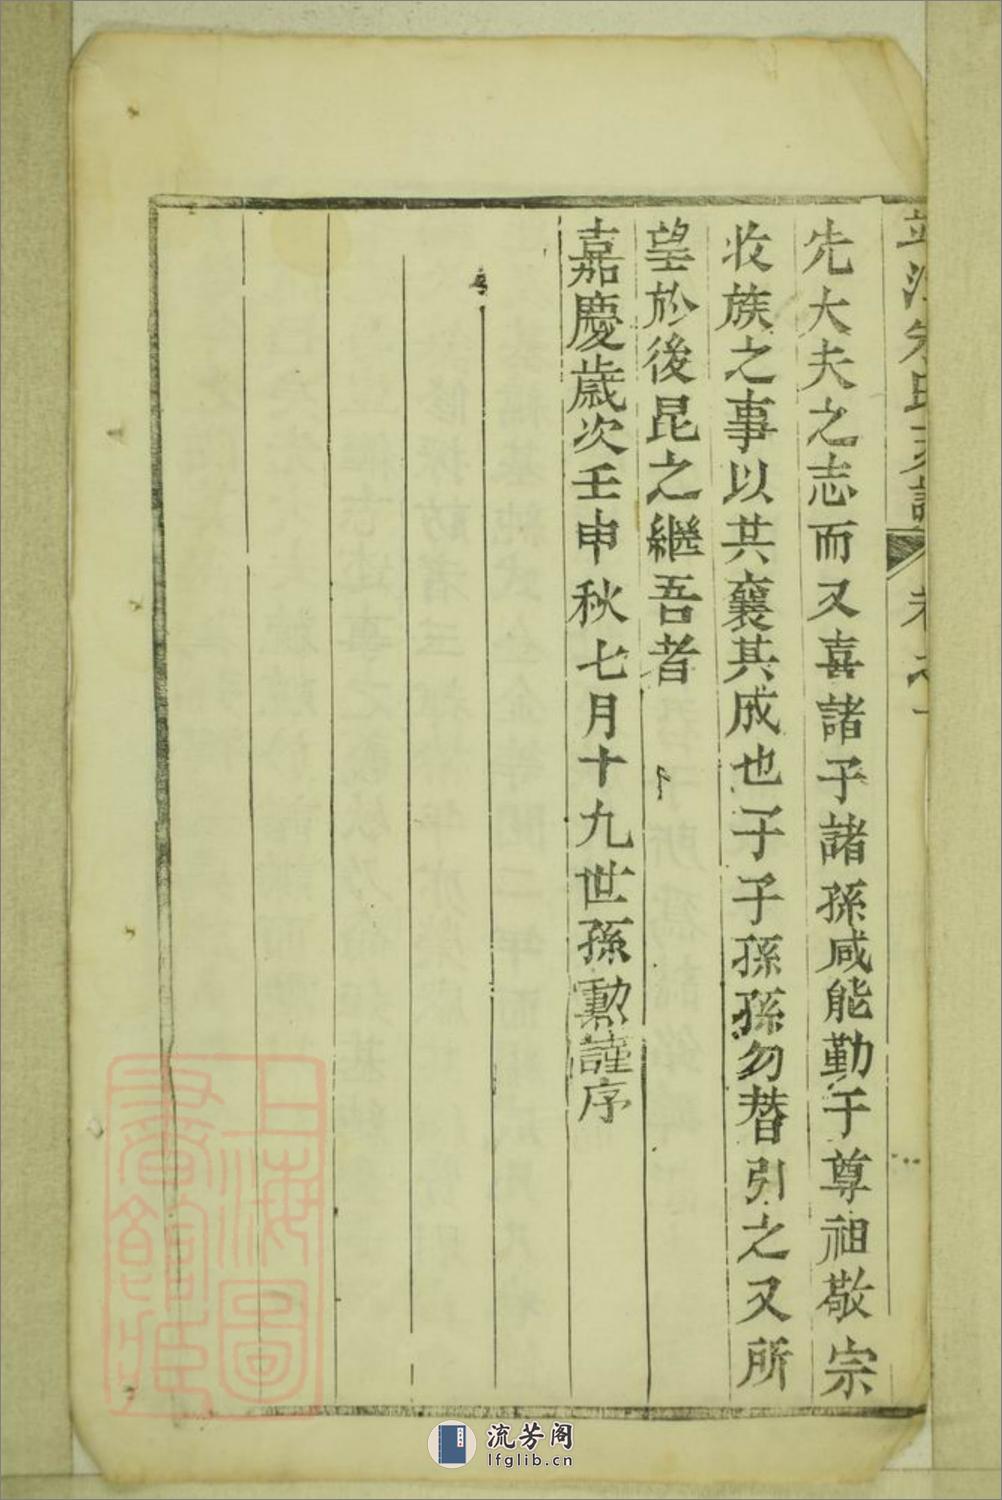 先大夫之志而又喜諸子諸孫咸能勤于尊祖敬宗
收族之事以共襄其成也子子孫孫勿替引之又所
望於後昆之繼吾者
嘉慶歲次壬申秋七月十九世孫勳謹序
上海圖書館藏
流芳阁
lfglib.cn